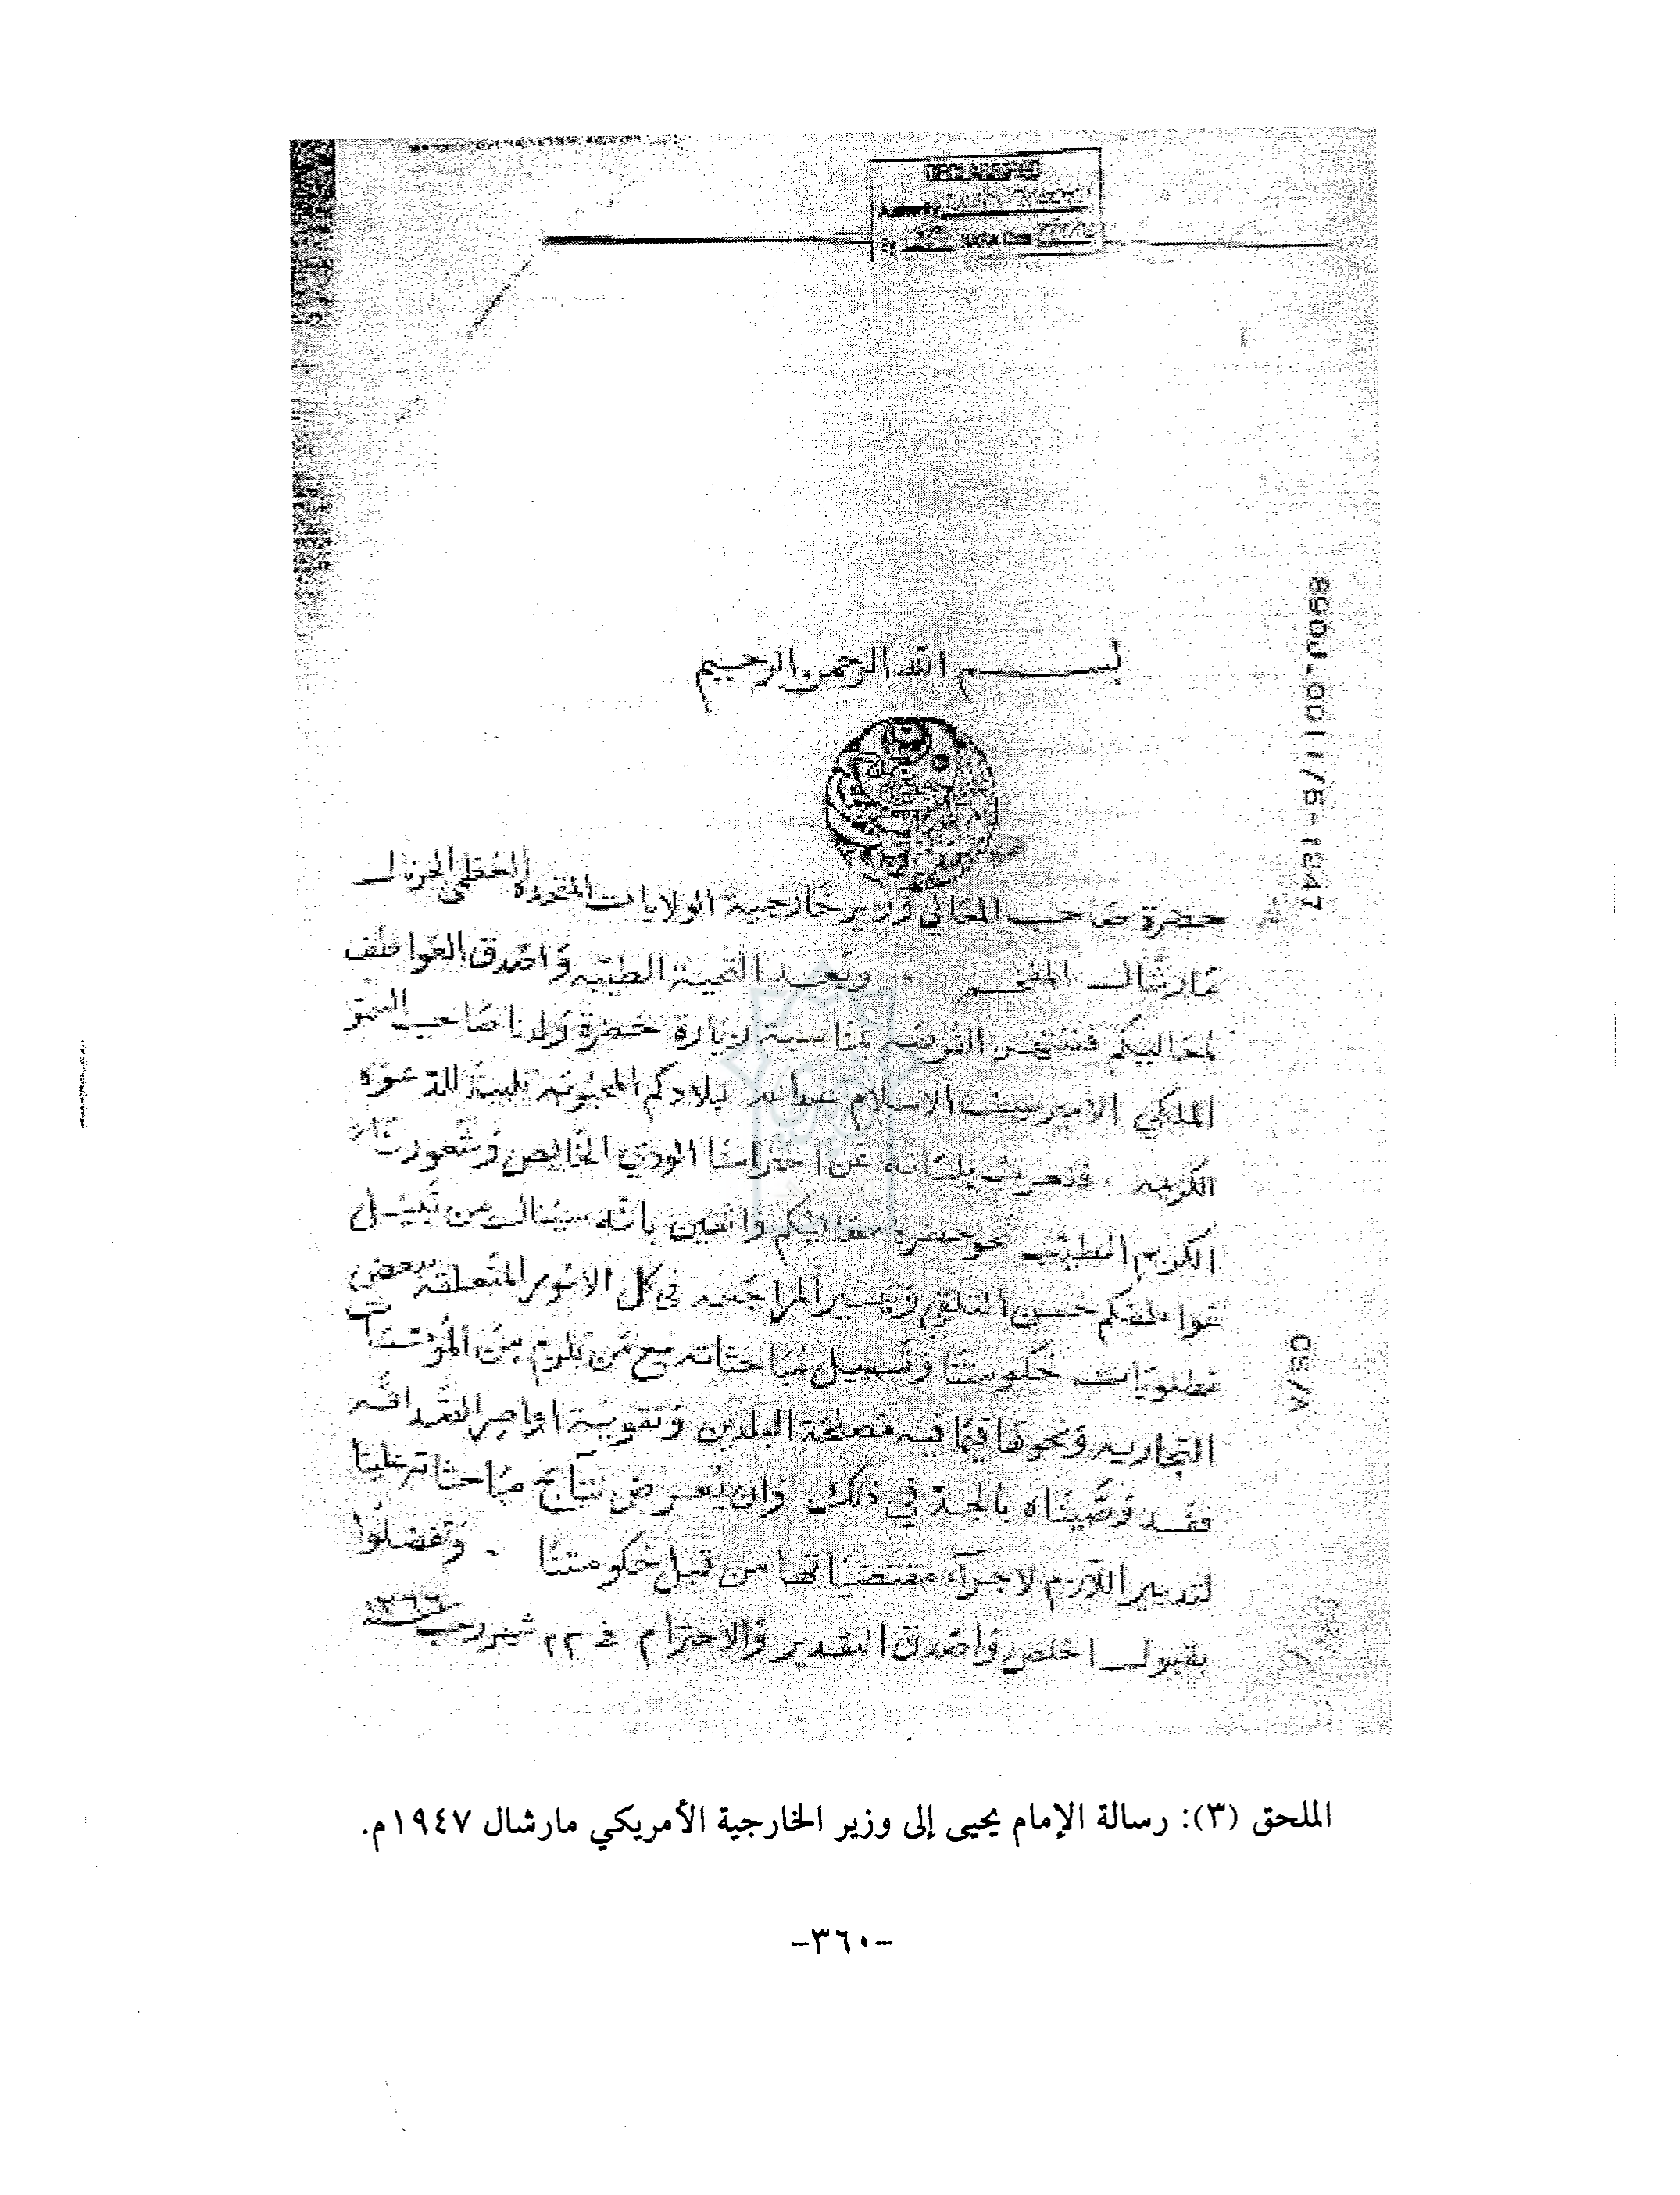 DECLASSIFIED
Authority
By
بسم الله الرحمن الرحيم
حضرة صاحب المعالي وزير خارجية الولايات المتحدة العظمى الجنرال
مارشال المفخم . وبعد التحية الطيبه واصدق العواطف
لمعاليكم فننتهز الفرصه بمناسبة زيارة حضرة ولدنا صاحب السمو
الملكي الامير سيف الاسلام عبدالله لبلادكم المحبوبه تلبية للدعوة
الكريمه . ونعرب بلسانه عن احترامنا الودي الخالص وشعورنا
الكريم الطيب نحو حضرة معاليكم واثقين بانه سينال من نبيل
عواطفكم حسن التلقي وتيسير المراجعه في كل الامور المتعلقة ببعض
مطلوبات حكومتنا وتسهيل مباحثاته مع من يلزم من المؤسسات
التجاريه ونحوها فيما فيه مصلحة البلدين وتقوية اواصر الصداقه
فقد وصيناه بالجد في ذلك وان يعرض نتآئج مباحثاته علينا
لتدبير اللازم لاجرآء مقتضياتها من قبل حكومتنا . وتفضلوا
بقبول اخلص واصدق التقدير والاحترام في ٢٢ شهر رجب سنة ١٣٦٦
890J.0011/6-1347
CS/A
الملحق (٣): رسالة الإمام يحيى إلى وزير الخارجية الأمريكي مارشال ١٩٤٧م.
-٣٦٠-